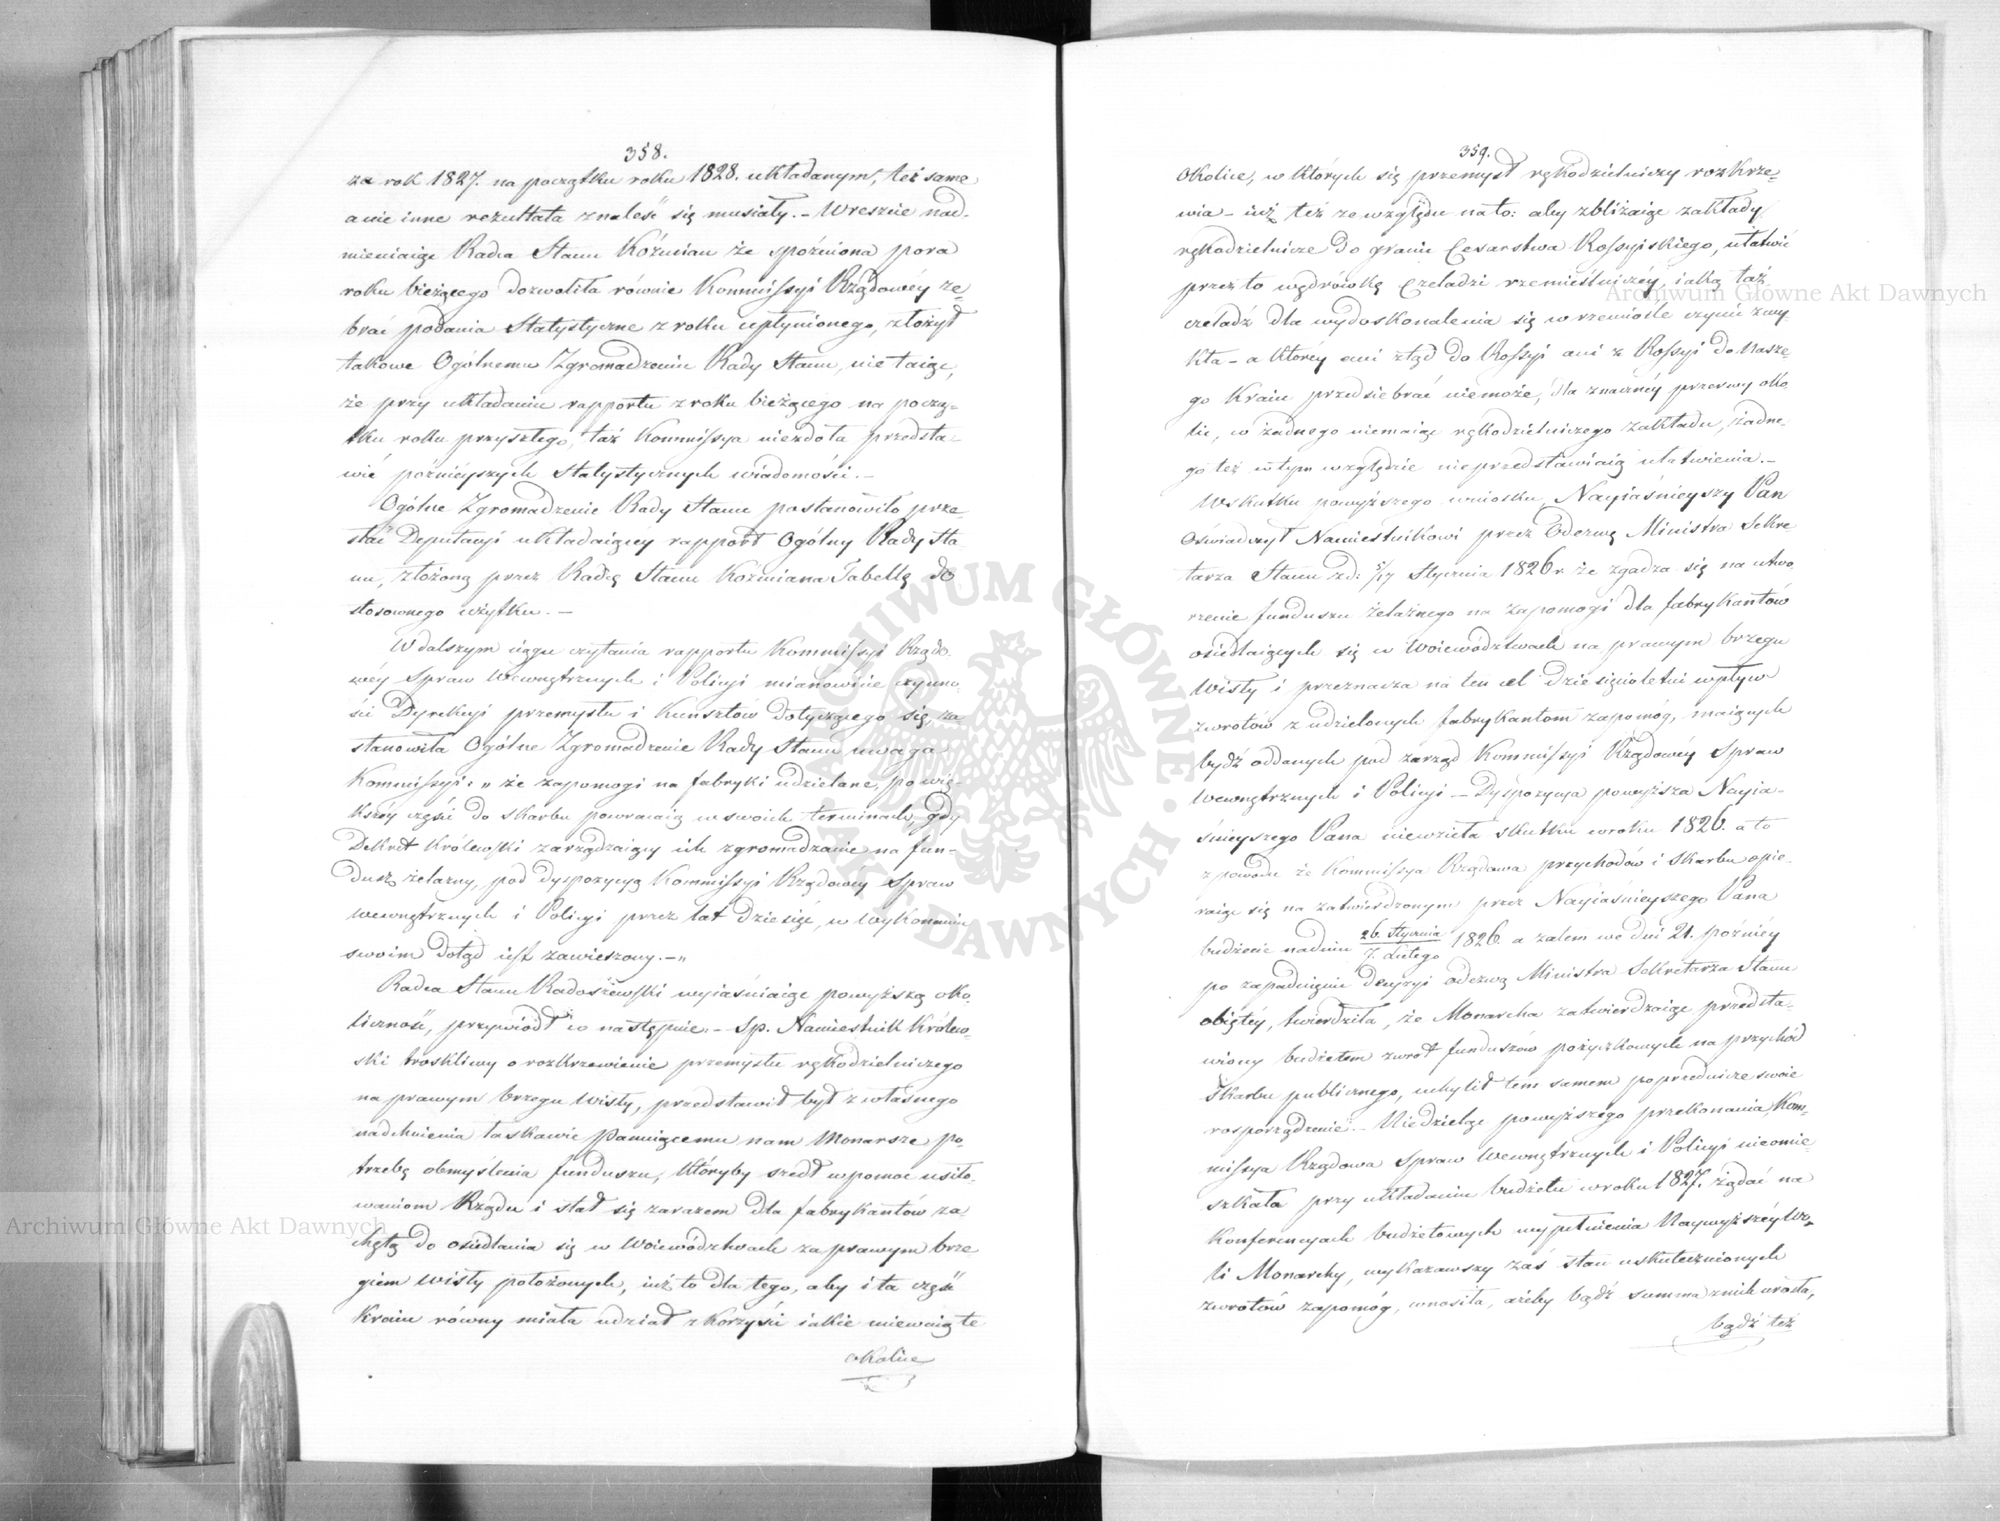 358.
za rok 1827. na początku roku 1828. układanym, też same
a nie inne rezultata znaleść się musiały. – Wreszcie nad-
mieniaiąc Radca Stanu Koźmian że spóźniona pora
roku bieżącego dozwoliła równie Kommissyi Rządowéy ze-
brać podania Statystyczne z roku upłynionego, złożył
takowe Ogólnemu Zgromadzeniu Rady Stanu, nie taiąc,
że przy układaniu rapportu z roku bieżącego na począ-
tku roku przyszłego, taż Kommissya niezdoła przedsta-
wić późniéyszych Statystycznych wiadomości. –
Ogólne Zgromadzenie Rady Stanu postanowiło prze-
słać Deputacyi układaiącéy rapport Ogólny Rady Sta-
nu, złożoną przez Radcę Stanu Koźmiana Tabellę do
stosownego użytku. –
W dalszym ciągu czytania rapportu Kommissyi Rządo-
wéy Spraw Wewnętrznych i Policyi mianowicie czynno-
ści Dyrekcyi przemysłu i Kunsztów dotyczącego się, za
stanowiła Ogólne Zgromadzenie Rady Stanu uwaga
Kommissyi: „ że zapomogi na fabryki udzielane, po wię-
kszéy części do skarbu powracaią w swoich terminach, gdy
Dekret Królewski zarządzaiący ich zgromadzanie na fun-
dusz żelazny, pod dyspozycyą Kommissyi Rządowéy Spraw
Wewnętrznych i Policyi przez lat dziesięć, w wykonaniu
swoim dotąd iest zawieszony. – „
Radca Stanu Radoszewski wyiaśniaiąc powyższą oko-
liczność, przywiódł co następnie: – Sp. Namiestnik Królew-
ski troskliwy o rozkrzewienie przemysłu rękodzielniczego
na prawym brzegu Wisły, przedstawił był z własnego
nadchnienia łaskawie Panuiącemu nam Monarsze po-
trzebę obmyślenia funduszu, któryby szedł w pomoc usiło-
waniom Rządu i stał się zarazem dla fabrykantów za-
chętą do osiedlania się w Woiewództwach za prawym brze
giem Wisły położonych, iuż to dla tego, aby i ta część
Kraiu równy miała udział z korzyści iakie miewaią te
okolice
359.
Okolice, w których się przemysł rękodzielniczy rozkrze-
wia – iuż też ze względu na to: aby zbliżaiąc zakłady
rękodzielnicze do granic Cesarstwa Rossyiskiego, ułatwić
przez to wędrówkę Czeladzi rzemieślniczéy, iaką taż
czeladź dla wydoskonalenia się w rzemiośle czynić zwy-
kła – a któréy ani ztąd do Rossyi ani z Rossyi do Nasze-
go Kraiu przedsiebrać niemoże, dla znacznéy przerwy oko
lic, w żadnego niemaiąc rękodzielniczego zakładu, żadne-
go też w tym względzie nieprzedstawiaią ułatwienia. –
W skutku powyższego wniosku, Nayiaśnieyszy Pan
Oświadczył Namiestnikowi przez Odezwę Ministra Sekre
tarza Stanu z d: 5/17 Stycznia 1826 r. że zgadza się na utwo
rzenie funduszu żelaznego na zapomogi dla fabrykantów
osiedlaiących się w Woiewództwach na prawym brzegu
Wisły i przeznacza na ten cel dziesięcioletni wpływ
zwrotów z udzielonych fabrykantom zapomóg, maiących
bydź oddanych pod zarząd Kommissyi Rządowéy Spraw
Wewnętrznych i Policyi – Dyspozycya powyższa Nayia-
śnieyszego Pana niewzieła skutku w roku 1826. a to
z powodu że Kommissya Rządowa przychodów i Skarbu opie-
raiąc się na zatwierdzonym przez Nayiaśnieyszego Pana
budżecie na dniu 26. Stycznia / 7. Lutego 1826. a zatem we dni 21. późniéy
po zapadnięciu decyzyi odezwą Ministra Sekretarza Stanu
obiętéy, twierdziła, że Monarcha zatwierdzaiąc przedsta-
wiony budżetem zwrot funduszów pożyczkowych na przychód
Skarbu publicznego, uchylił tém samém poprzednicze swoie
rosporządzenie. – Niedzieląc powyższego przekonania, Kom-
missya Rządowa Spraw Wewnętrznych i Policyi nieomie-
szkała przy układaniu budżetu w roku 1827. żądać na
Konferencyach budżetowych wypełnienia Naywyższéy Wo-
li Monarchy, wykazawszy zaś stan uskutecznionych
zwrotów zapomóg, wnosiła, ażeby bądź summa z nich urosła,
bądź też
Archiwum Główne Akt Dawnych
Archiwum Główne Akt Dawnych
ARCHIWUM GŁÓWNE · AKT DAWNYCH ·